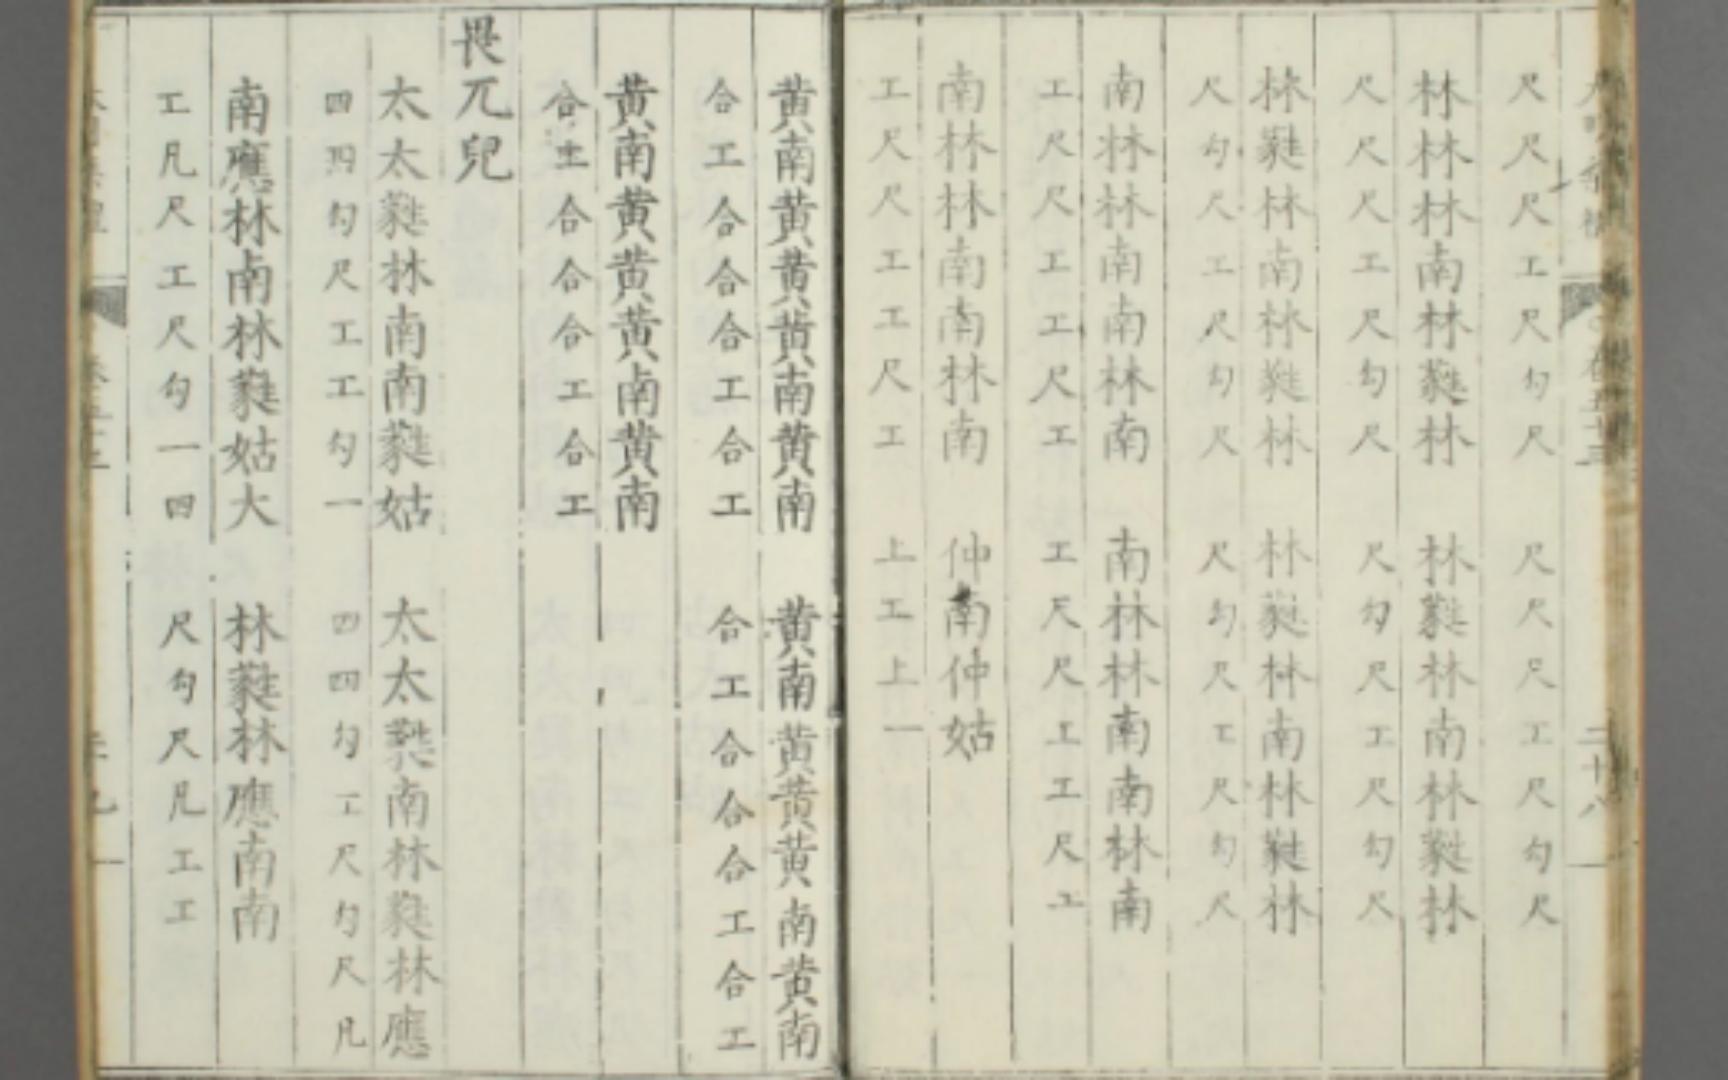 二十八
尺尺尺工尺勾尺　尺尺尺工尺勾尺
林林林南林蕤林　林蕤林南林蕤林
尺尺尺工尺勾尺　尺勾尺工尺勾尺
林蕤林南林蕤林　林蕤林南林蕤林
尺勾尺工尺勾尺　尺勾尺工尺勾尺
南林林南南林南　南林林南南林南
工尺尺工工尺工　工尺尺工工尺工
南林林南南林南　仲南仲姑
工尺尺工工尺工　上工上一
黄南黄黄黄南黄南　黄南黄黄黄南黄南
合工合合合工合工　合工合合合工合工
黄南黄黄黄南黄南
合工合合合工合工
畏兀兒
太太蕤林南南蕤姑　太太蕤南林蕤林應
四四勾尺工工勾一　四四勾工尺勾尺凡
南應林南林蕤姑大　林蕤林應南南
工凡尺工尺勾一四　尺勾尺凡工工